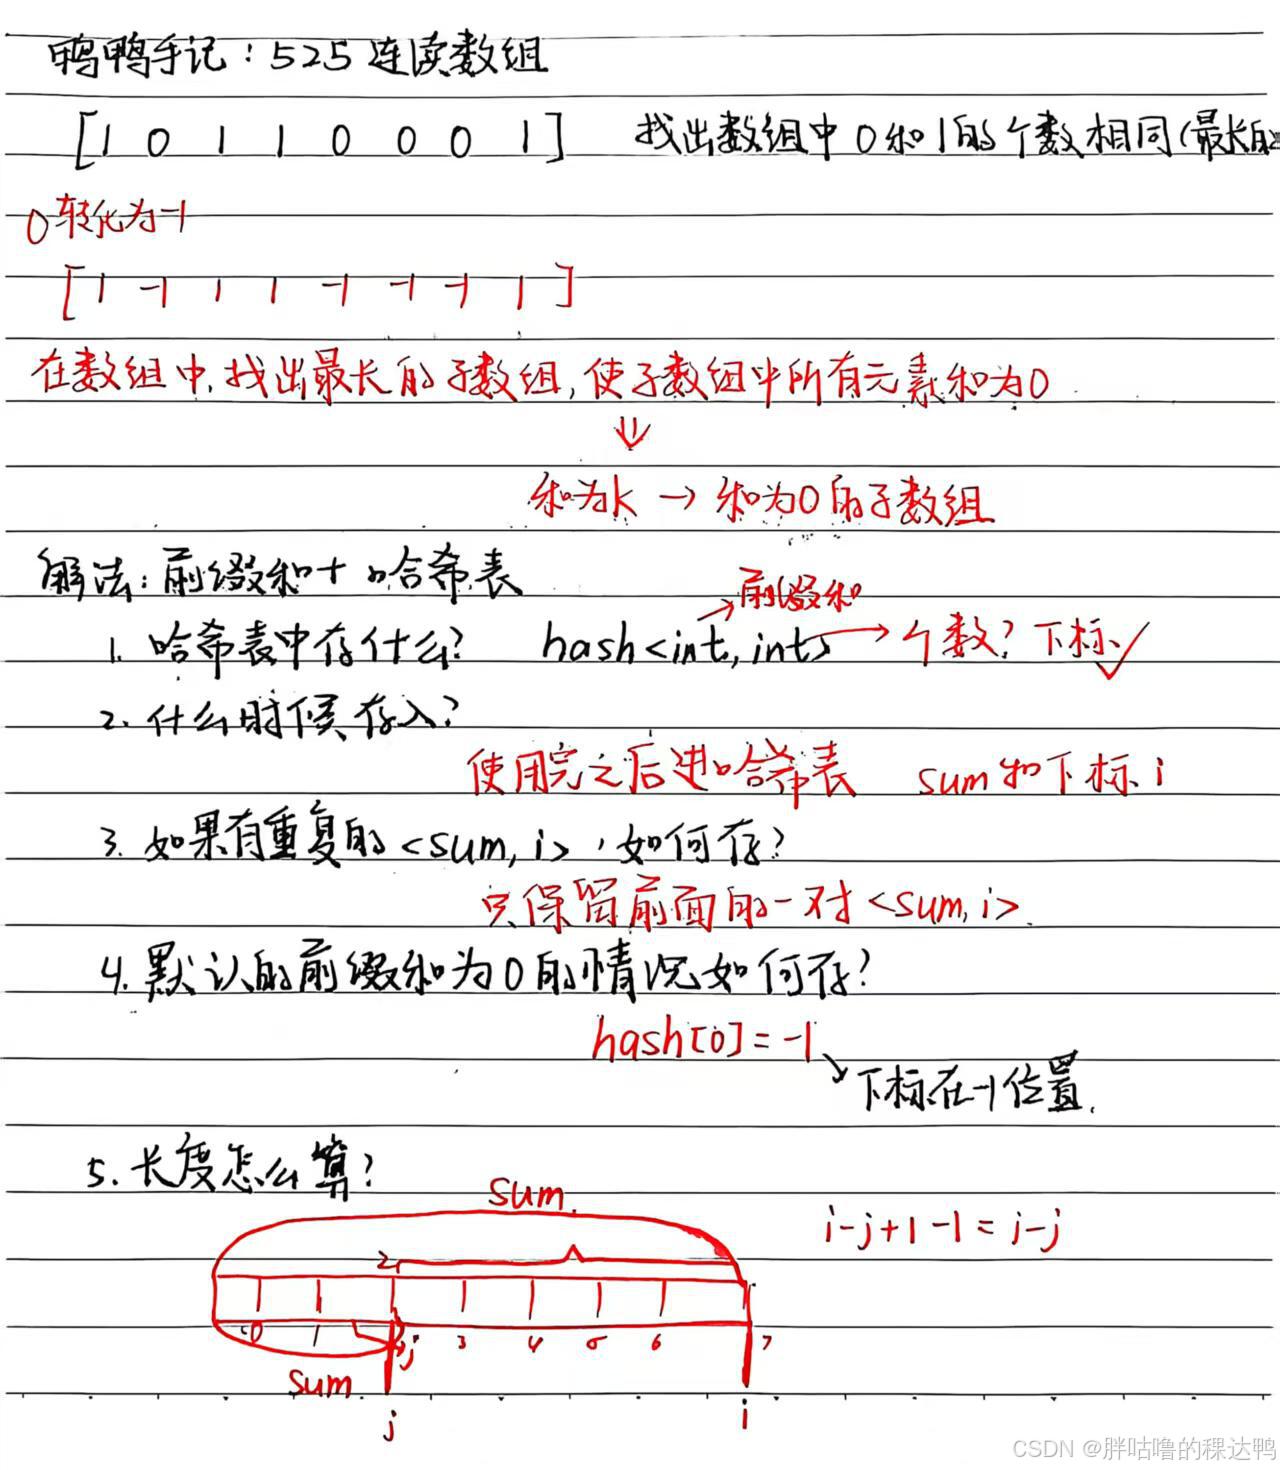 鸭鸭手记：525 连读数组
[1 0 1 1 0 0 0 1] 找出数组中 0和1的个数相同(最长的
0转化为-1
[1 -1 1 1 -1 -1 -1 1]
在数组中,找出最长的子数组,使子数组中所有元素和为0
和为k → 和为0的子数组
解法：前缀和+哈希表
前缀和
1. 哈希表中存什么？ hash<int, int> → 个数？下标✓
2. 什么时候存入？
使用完之后进哈希表 sum和下标i
3. 如果有重复的<sum, i>，如何存？
只保留前面的一对<sum, i>.
4. 默认的前缀和为0的情况如何存？
hash[0] = -1
下标在-1位置.
5. 长度怎么算？
sum
i-j+1-1 = i-j
2
0 1 j 3 4 5 6 7
sum
j i
CSDN @胖咕噜的稞达鸭